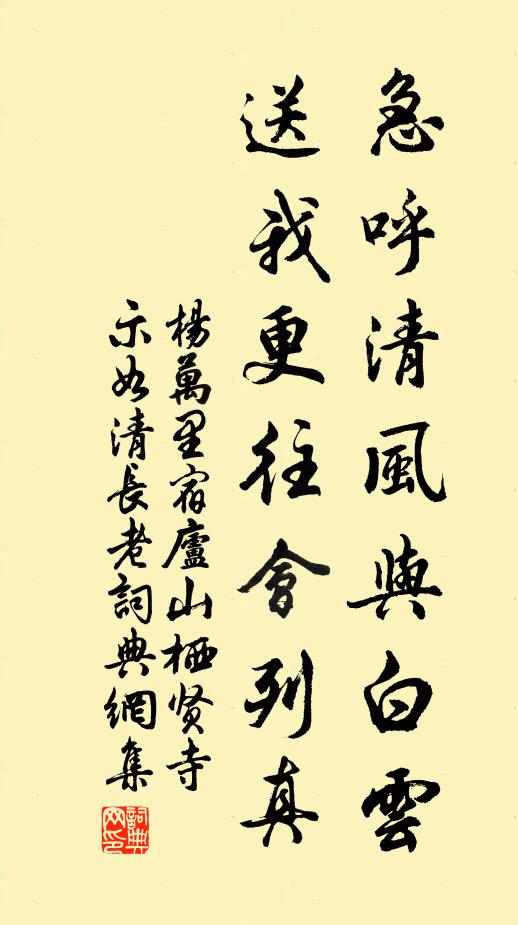 急呼清風與白雲
送我更往會列真
楊萬里宿廬山栖贤寺
示如清長老詞典網集
詞典网印